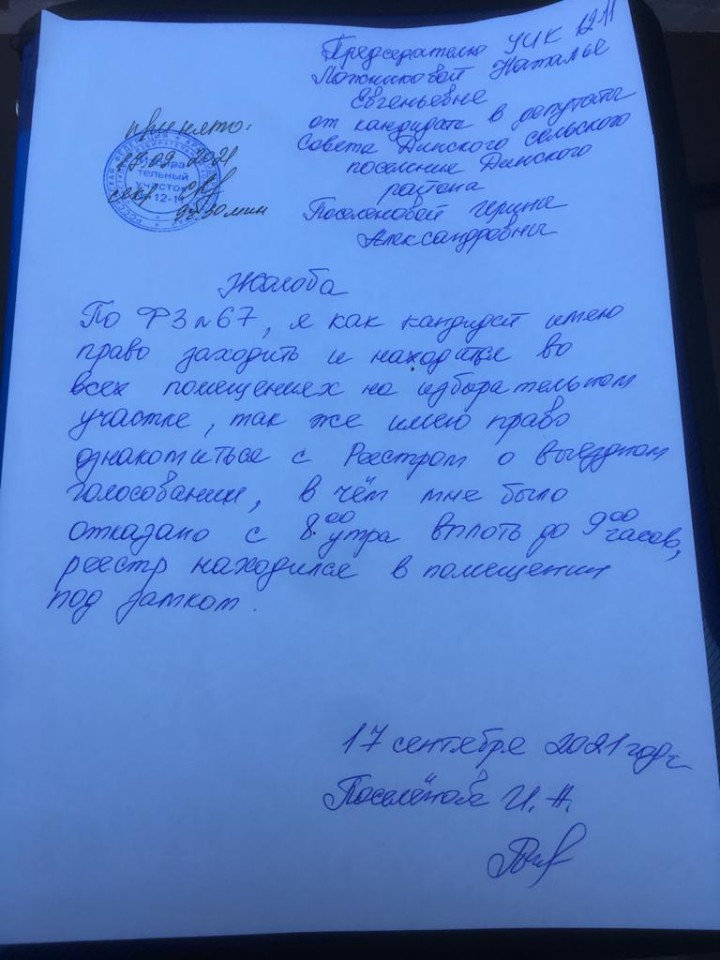 Председателю УИК 1211
Ложниковой Наталье
Евгеньевне
от кандидата в депутаты
Совета Динского сельского
поселение Динского
района
Поселёновой Ирине
Александровны
принято:
17.09 2021
секр
9ч. 30 мин
избира
тельный
участок
12-11
Жалоба
По ФЗ №67, я как кандидат имею
право заходить и находится во
всех помещениях на избирательном
участке, так же имею право
ознакомиться с Реестром о выездном
голосовании, в чём мне было
отказано с 8.00 утра вплоть до 9 00 часов,
реестр находился в помещении
под замком.
17 сентября 2021 года
Поселёнова И. А.